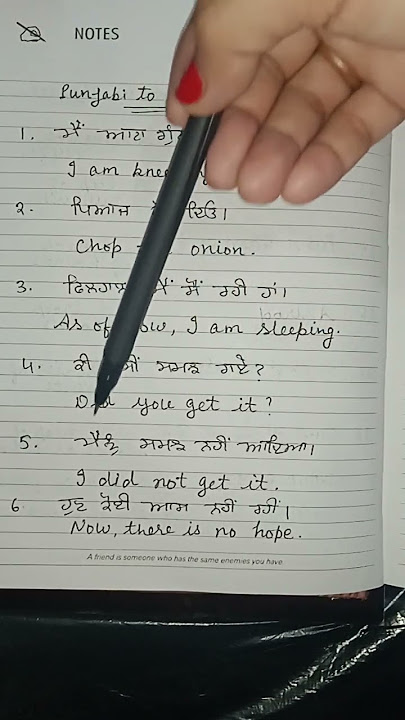 NOTES
Punjabi to
1. ਮੈਂ ਆਟਾ
I am
2. ਪਿਆਜ਼ ਦਿਓ।
Chop onion.
3. ਮੈਂ ਸੌਂ ਰਹੀ ਹਾਂ।
As of now, I am sleeping.
4. ਕੀ ਸਮਝ ਗਏ?
Did you get it?
5. ਮੈਨੂੰ ਸਮਝ ਨਹੀਂ ਆਇਆ।
I did not get it.
6 ਹੁਣ ਕੋਈ ਆਸ ਨਹੀਂ ਰਹੀਂ।
Now, there is no hope.
A friend is someone who has the same enemies you have.